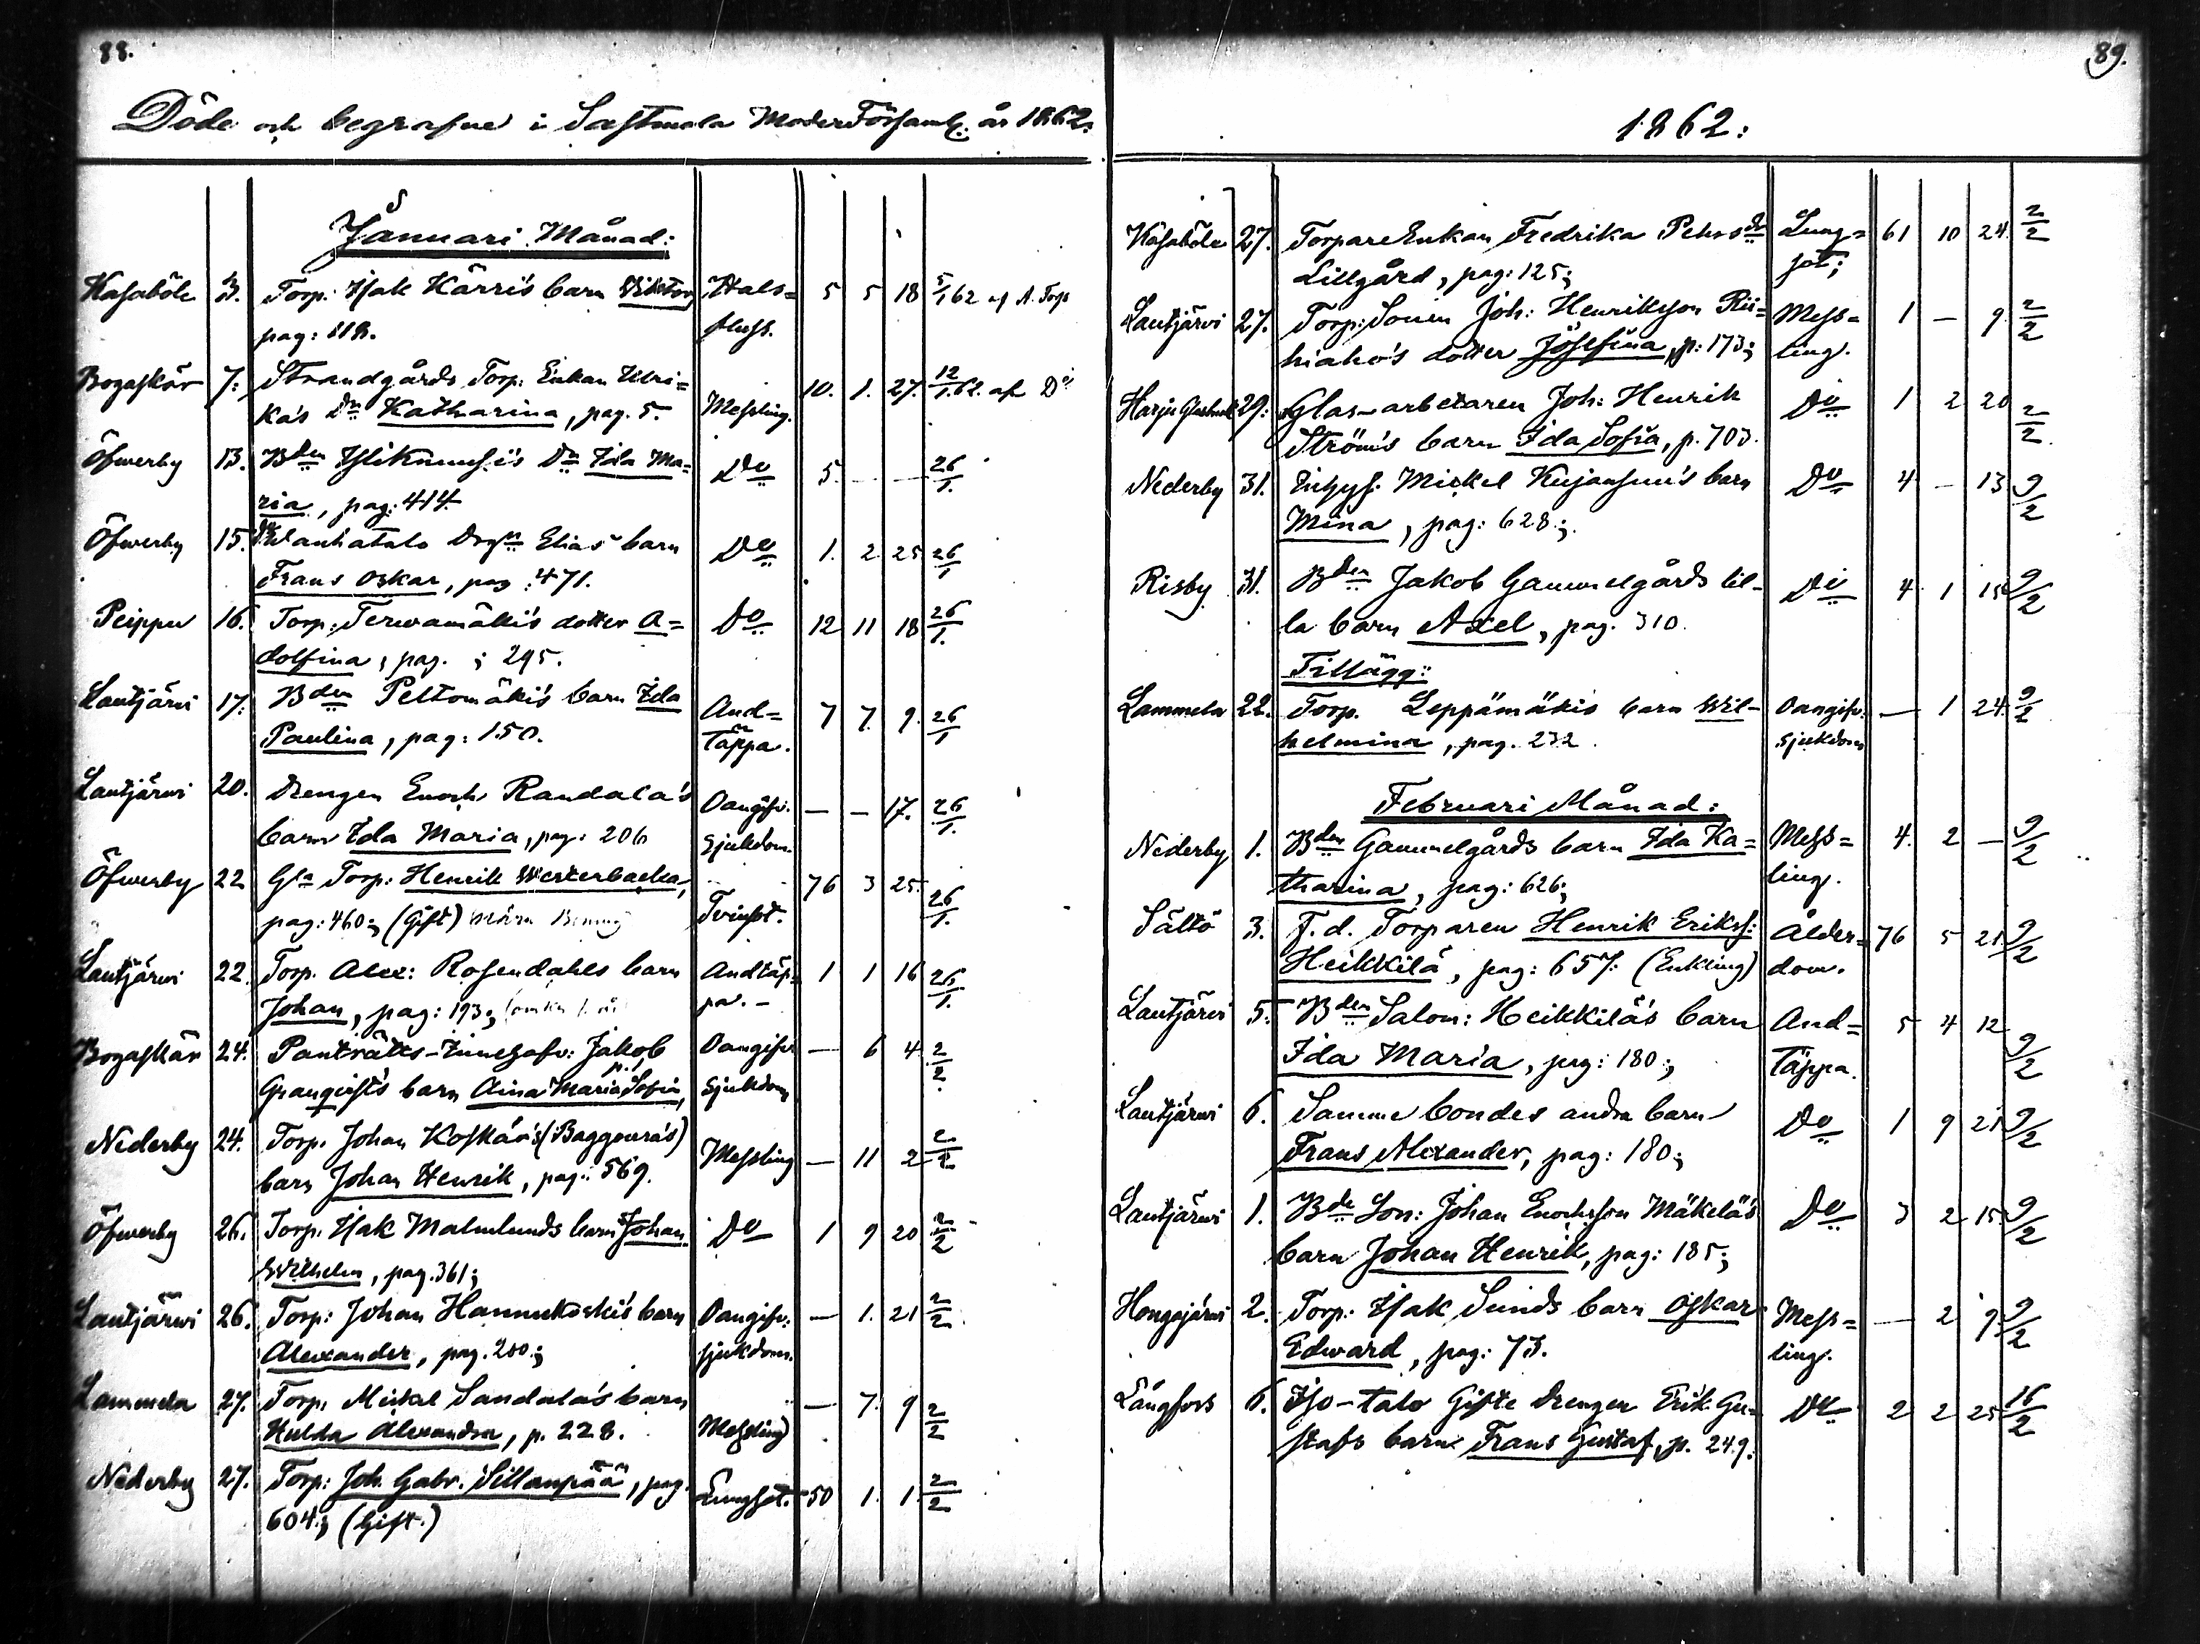 88.
Döde och begrafne i Sastmola Moderförsaml: år 1862:
Januari Månad:
Kasaböle 3. Torp: Isak Kärri's barn Viktor, Hals= 5 5 18 5/1 62 af A. Törs
pag: 118. fluss.
Bogaskär 7: Strandgårds Torp: Enkan Ulri= 10. 1. 27. 12/1 62. af Do
ka's Dr Katharina, pag. 5. Messling.
Öfwerby 13. Bden Yliknuussi's Dr Ida Ma= Do 5. — — 26/1.
ria, pag: 414.
Öfwerby 15. Wanhatalo Drgn Elias barn Do 1. 2 25 26/1
Frans Oskar, pag: 471.
Peippu 16. Torp: Terwamäki's dotter A= Do 12 11 18 26/1.
dolfina, pag. ; 295.
Lautjärvi 17. Bden Peltomäki's barn Ida And= 7 7. 9. 26/1
Paulina, pag: 150. täppa.
Lautjärwi 20. Drengen Enoch Randala's Oangifv. — — 17. 26/1.
barn Ida Maria, pag: 206 sjukdom.
Öfwerby 22 Gla Torp: Henrik Westerbacka, 76 3 25. 26/1.
pag: 460; (Gift) Tvinsot.
Lautjärwi 22. Torp. Alex: Rosendahls barn Andtäp= 1 1 16 26/1.
Johan, pag: 193; pa. —
Bogaskär 24. Panträtts-Innehafv: Jakob Oangifv — 6 4 2/2.
Granqvist's barn Aina Maria Sofia, sjukdom
Nederby 24. Torp. Johan Koskar's (Baggoura's) Messling — 11 2 2/2
barn Johan Henrik, pag: 569.
Öfwerby 26. Torp. Isak Malmlunds barn Johan Do 1 9 20 2/2
Wilhelm, pag. 361;
Lautjärwi 26. Torp: Johan Hannukoski's barn Oangifv: — 1. 21 2/2.
Alexander, pag. 200; sjukdom.
Lammela 27. Torp. Mickel Sandala's barn — 7. 9 2/2
Hulda Alexandra, p. 228. Messling
Nederby 27. Torp: Joh. Gabr. Sillanpää, pag. Lungsot. 50 1. 1. 2/2
604; (Gift.)
89.
1862:
Kasaböle 27. TorpareEnkan Fredrika Pehrsdr Lung= 61 10 24. 2/2
Lillgård, pag: 125; sot;
Lautjärvi 27. Torp: Sonen Joh: Henriksson Rii= Mess= 1 — 9. 2/2
hiaho's dotter Josefina, p: 173; ling.
Harju Glasbruk 29: Glas-arbetaren Joh: Henrik Do 1 2 20 2/2.
Ström's barn Ida Sofia, p. 703.
Nederby 31. Inhys. Mickel Kujansuu's barn Do 4 — 13 9/2
Mina, pag: 628;
Risby 31. Bden Jakob Gammelgårds lil- Do 4 1 15 9/2
la barn Axel, pag. 310.
Tillägg:
Lammela 22. Torp. Leppämäkis barn Wil- Oangifv. — 1 24. 9/2
helmina, pag. 232. sjukdom
Februari Månad:
Nederby 1. Bden Gammelgårds barn Ida Ka= Mess= 4. 2 — 9/2
tharina, pag: 626; ling.
Sältö 3. F. d. Torparen Henrik Eriks: Ålder= 76 5 21 9/2
Heikkilä, pag: 657: (Enkling) dom.
Lautjärvi 5. Bden Salom: Heikkilä's barn And= 5 4 12 9/2
Ida Maria, pag: 180; täppa.
Lautjärwi 6. Samme bondes andra barn Do 1 9 21 9/2
Frans Alexander, pag: 180;
Lautjärwi 1. Bde Son: Johan Enochsson Mäkelä's Do 3 2 15. 9/2
barn Johan Henrik, pag: 185;
Hongajärwi 2. Torp: Isak Sunds barn Oskar Mess= — 2 9. 9/2
Edward, pag: 73. ling.
Långfors 6. Iso-talo Gifte Drengen Erik Gu= Do 2 2 25 16/2
stafs barn Frans Gustaf, p. 249: